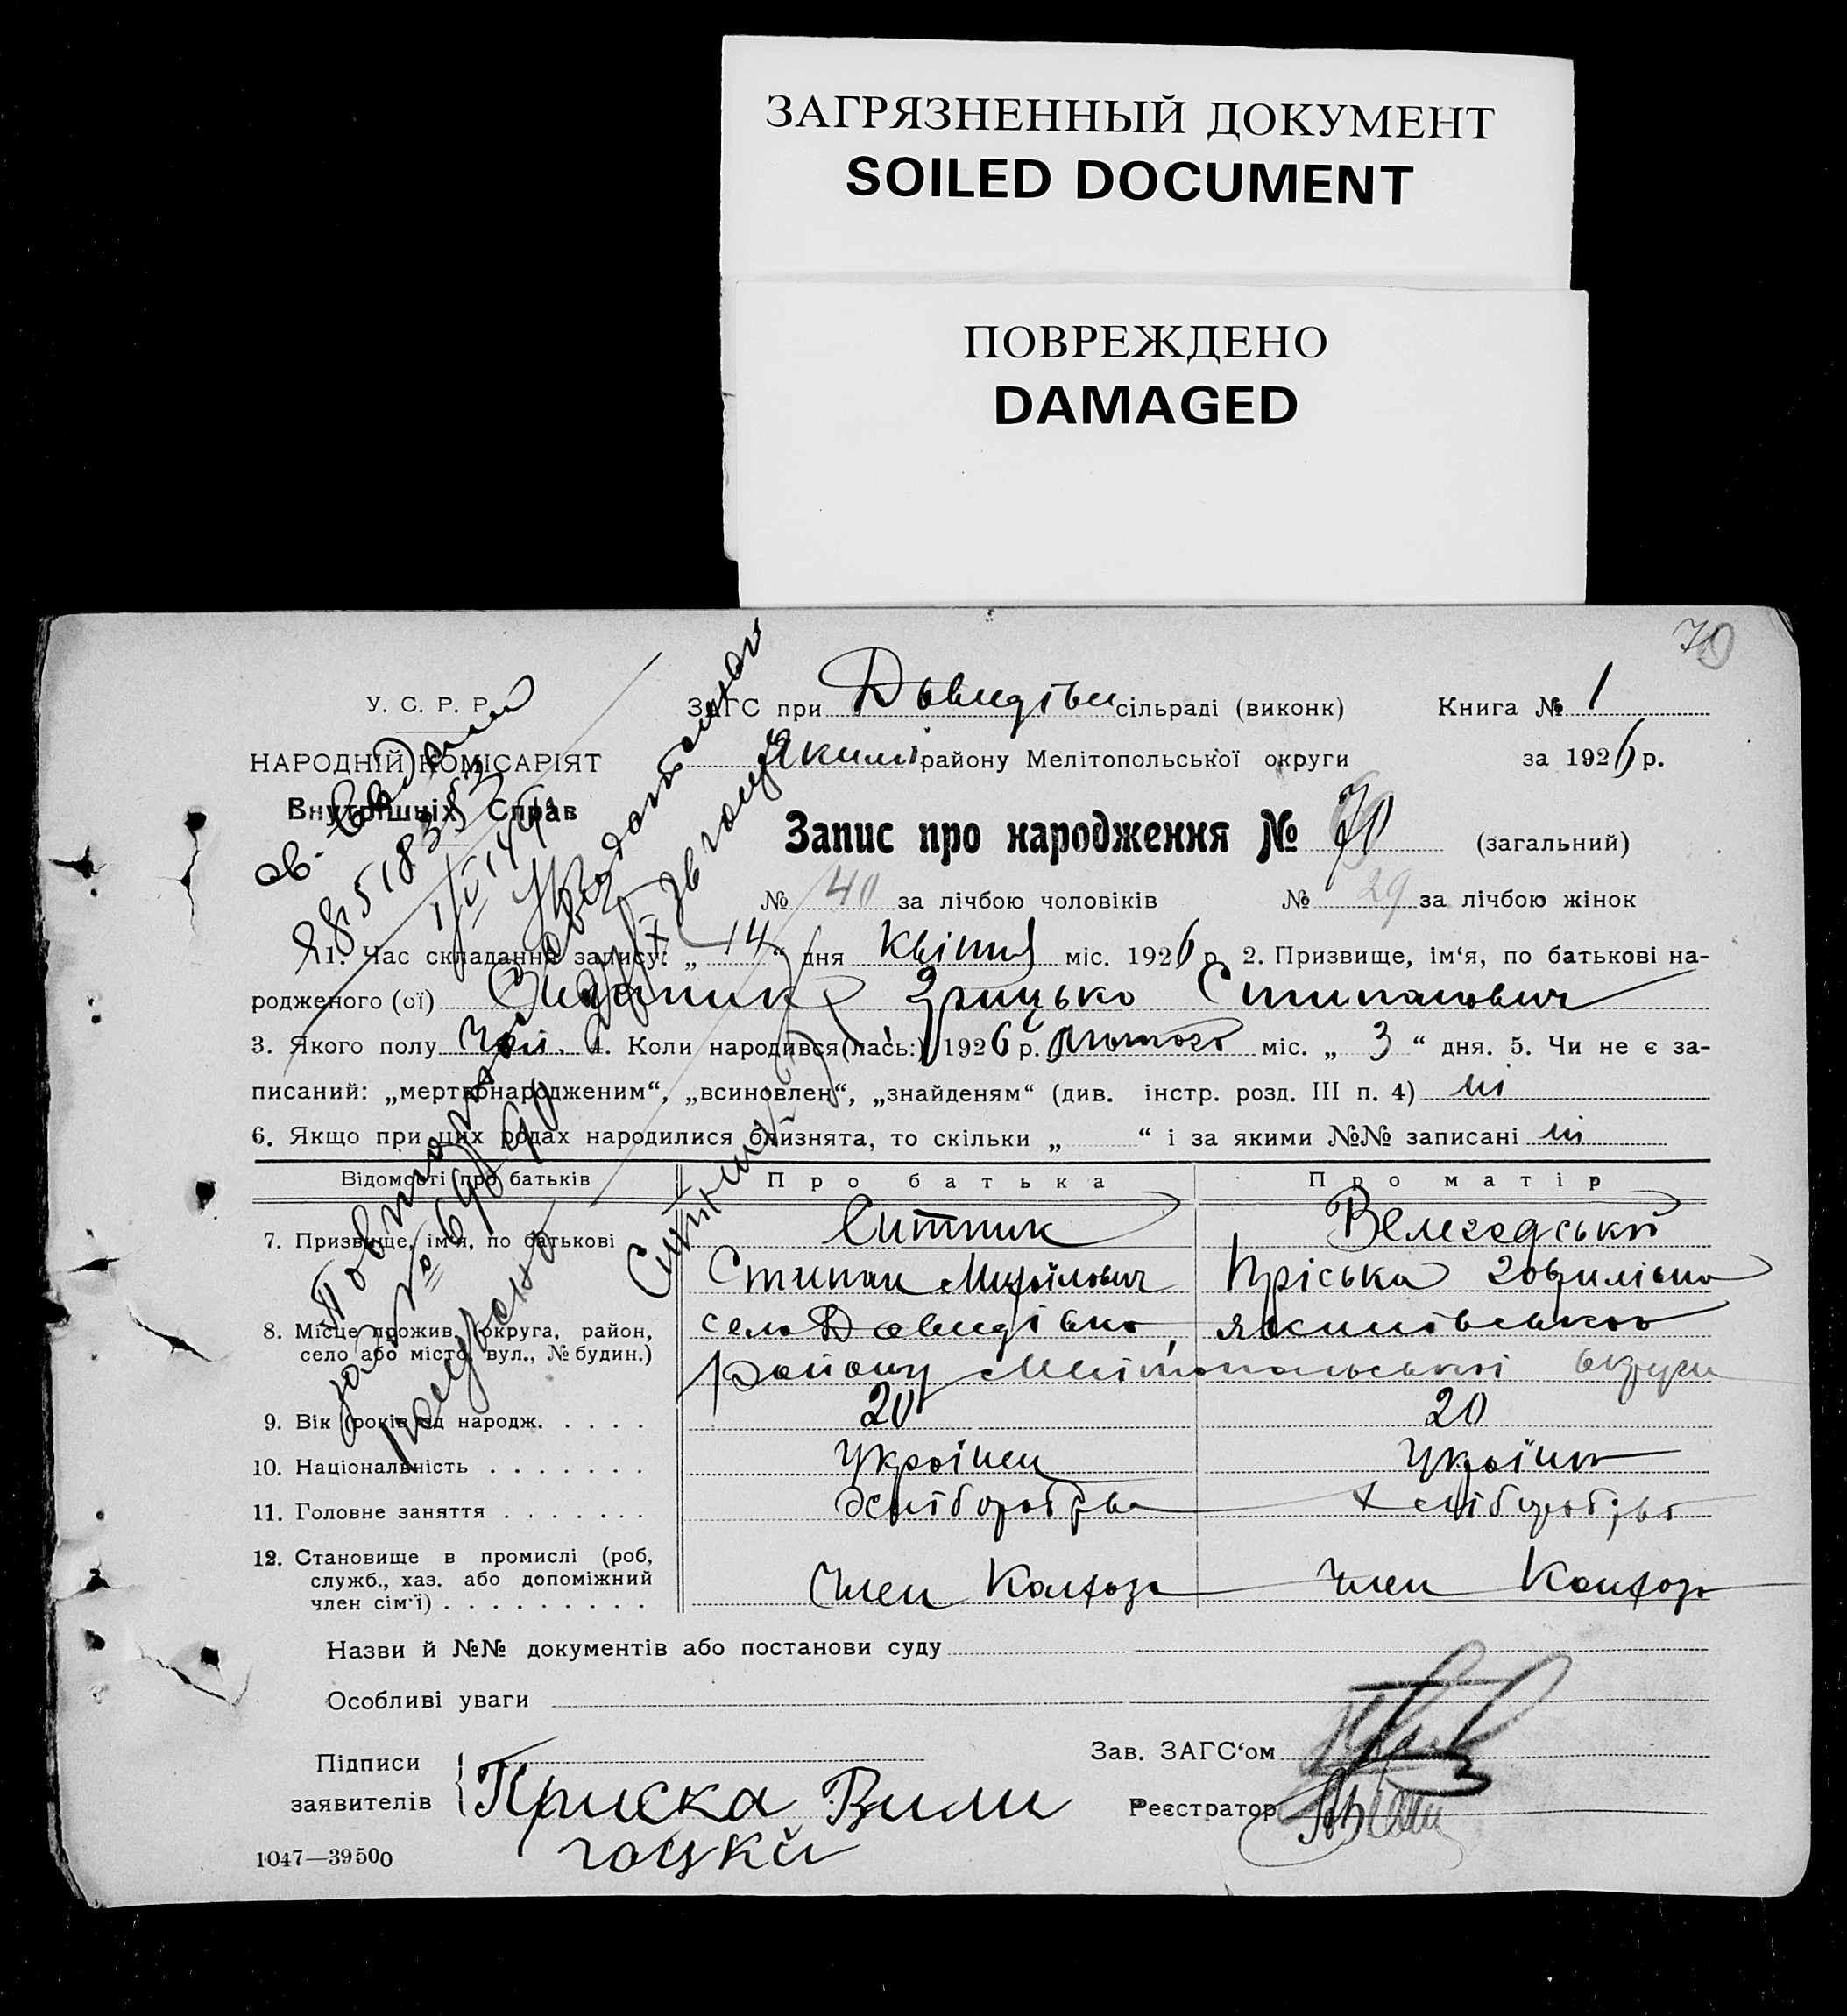 ЗАГРЯЗНЕННЫЙ ДОКУМЕНТ
SOILED DOCUMENT
ПОВРЕЖДЕНО
DAMAGED
70
У. С. Р. Р.
НАРОДНІЙ КОМІСАРІЯТ
Внутрішніх Справ
ЗАГС при Давидівськ сільраді (виконк) Книга № 1
Якимі району Мелітопольської округи за 1926 р.
Запис про народження № 70 (загальний)
№ 40 за лічбою чоловіків № 29 за лічбою жінок
1. Час складання запису: „ 14 “ дня Квітня міс. 1926 р. 2. Призвище, ім‘я, по батькові на-
родженого (ої) Ситник Грицько Степанович
3. Якого полу Чол. 4. Коли народився (лась:) 1926 р. лютого міс. „ 3 “ дня. 5. Чи не є за-
писаний: „мертвонародженим“, „всиновлен“, „знайденям“ (див. інстр. розд. III п. 4) ні
6. Якщо при цих родах народилися близнята, то скільки „ “ і за якими №№ записані ні
Відомості про батьків Про батька Про матір
7. Призвище, ім‘я, по батькові Ситник Велегодськой
Степан Михайлович Пріська Гаврилівна
8. Місце прожив. (округа, район, село Давидівка, Якимівського
село або місто, вул., № будин.) району Мелітопольської округи
9. Вік (років від народж. . . . . 20 20
10. Національність . . . . . . . Українец Українк
11. Головне заняття . . . . . . . Хліборобство Хліборобство
12. Становище в промислі (роб,
служб., хаз. або допоміжний
член сім‘ї) . . . . . . . . . Член Колхоза Член Колхоза
Назви й №№ документів або постанови суду
Особливі уваги
Підписи Зав. ЗАГС‘ом
заявителів Приска Вили Реєстратор
гоцкй
1047—39500